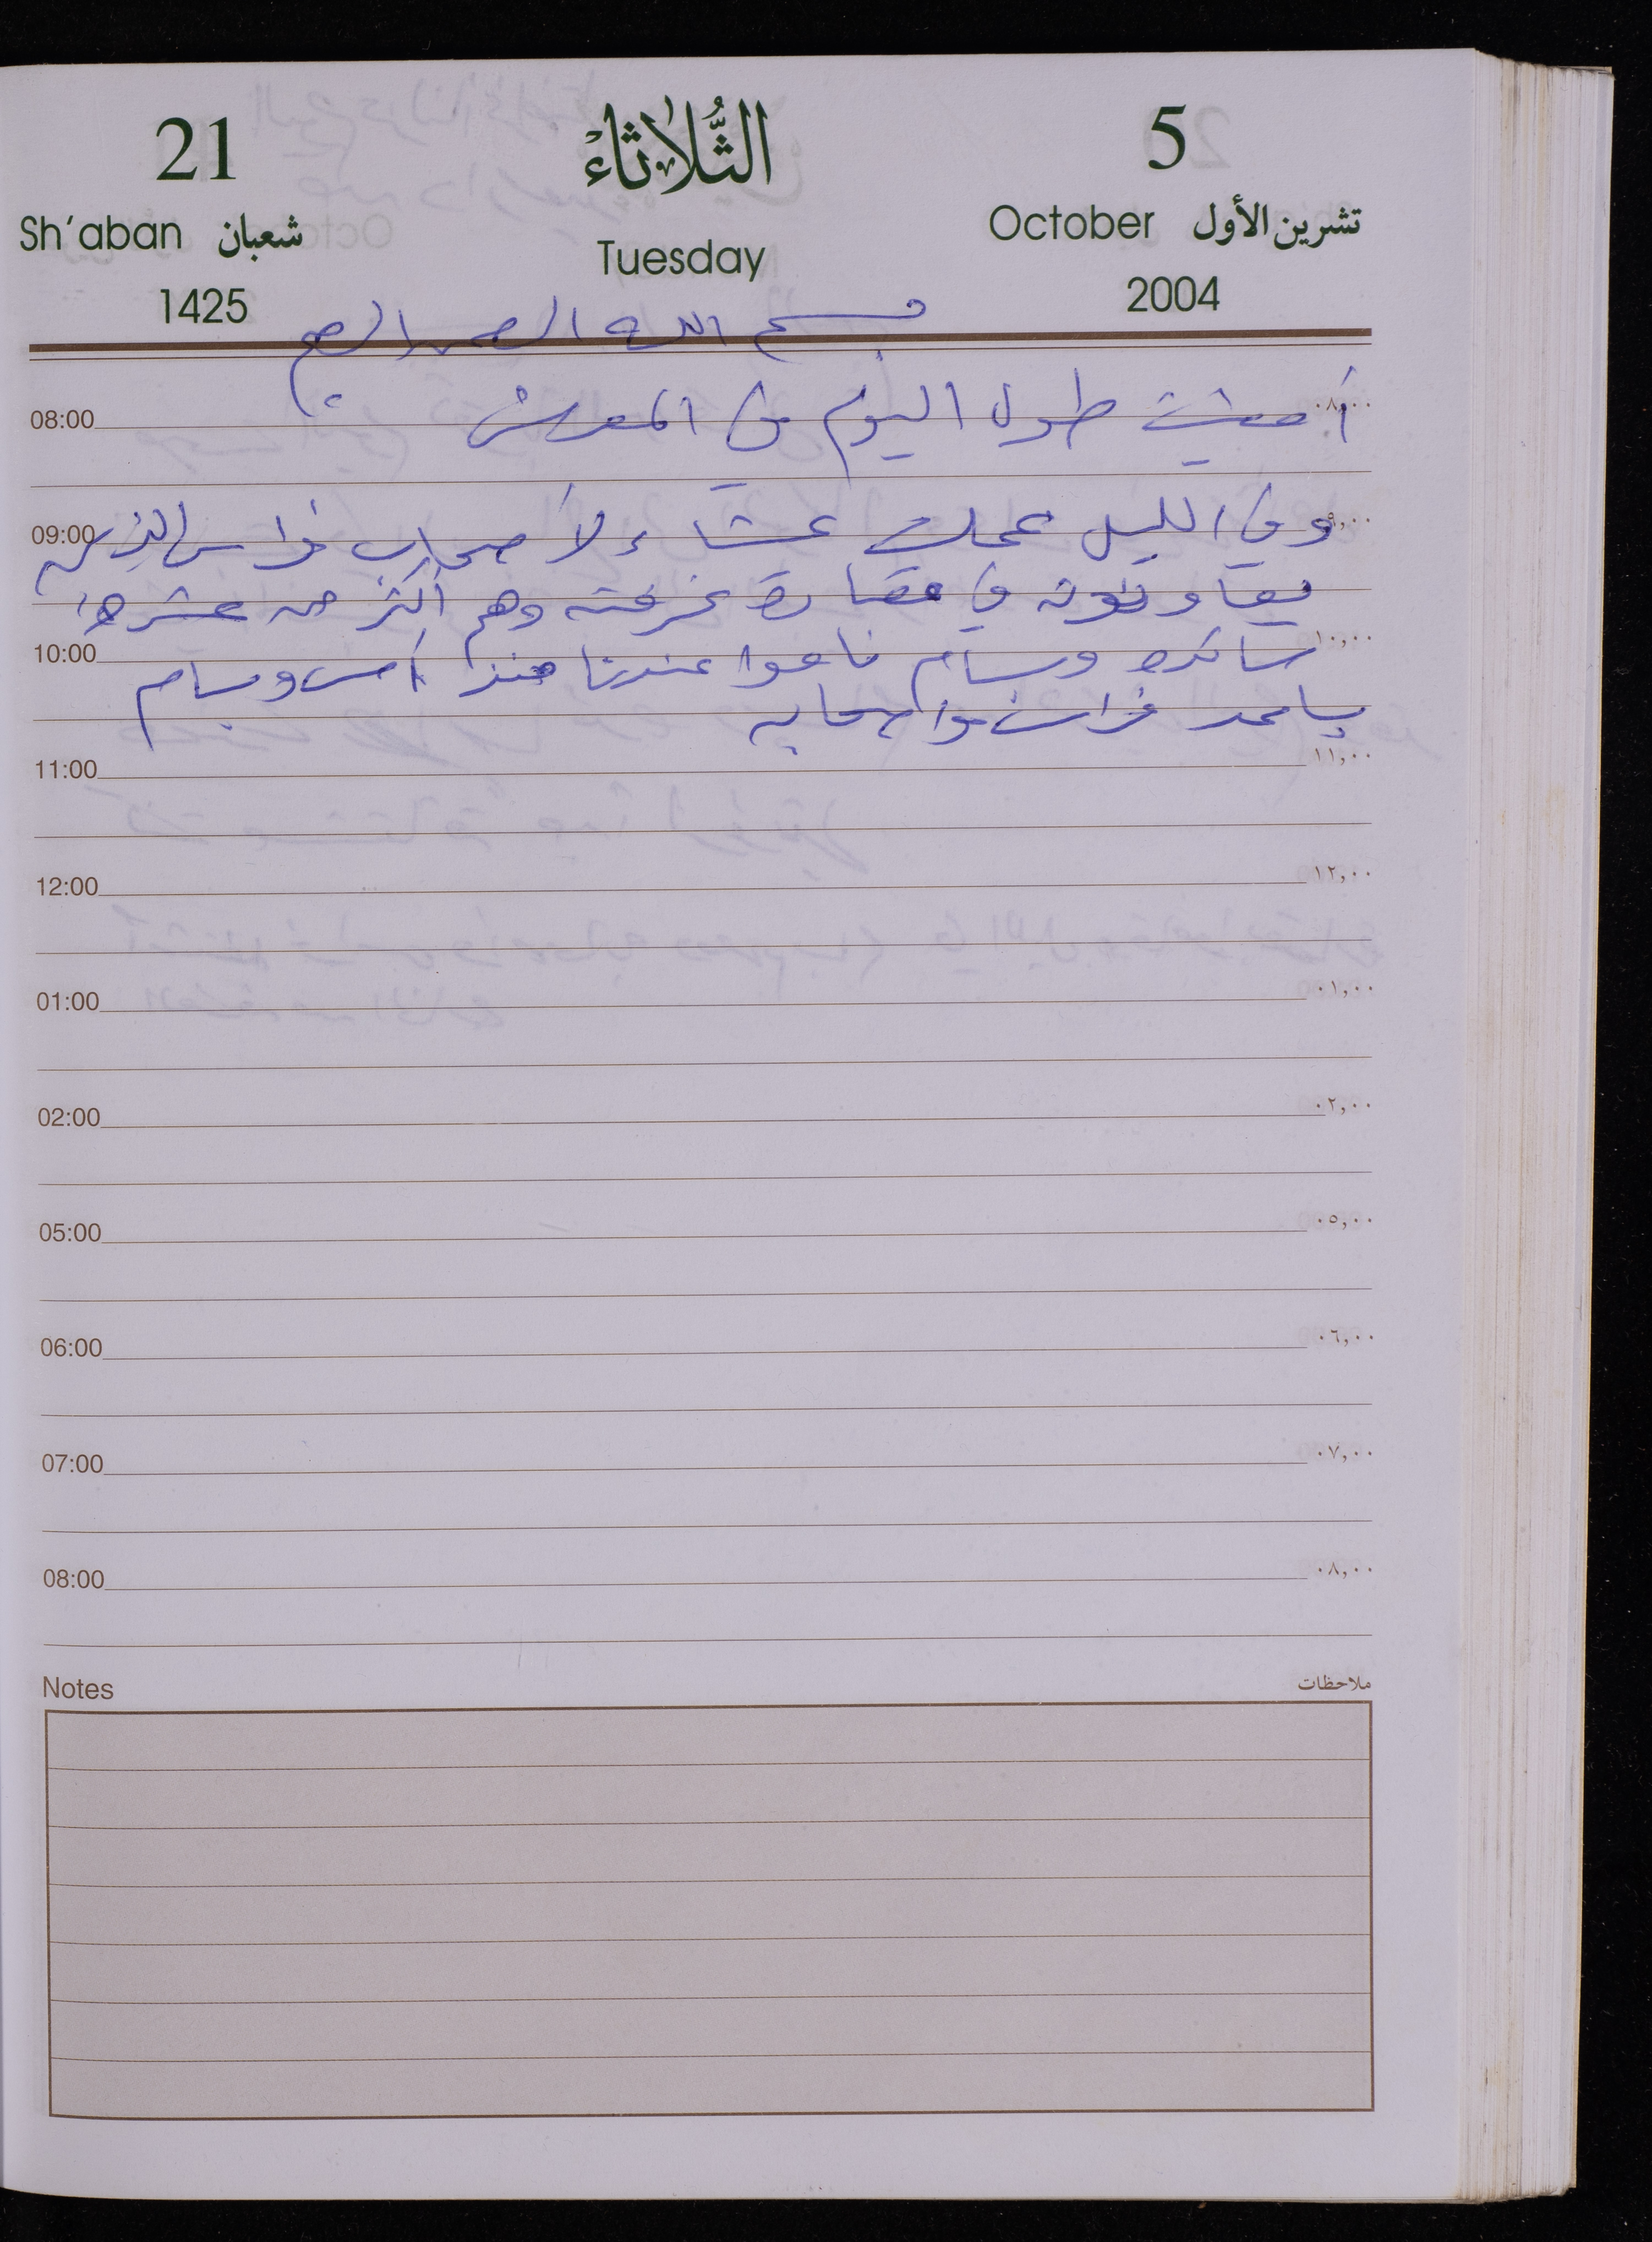 5 الثُّلاثاء 21
تشرين الأول October Tuesday شعبان Sh'aban
2004 1425
بسم الله الرحمن الرحيم
أمضيت طول اليوم في المعرض
٠٨,٠٠ 08:00
وفي الليل عملت عشاء لأصحاب فراس الذين
٠٩,٠٠ 09:00
يعاونونه في عمارة غرفته وهم أكثر من عشرة
ساندرة وبسام ناموا عندنا منذ أمس وبسام
١٠,٠٠ 10:00
يساعد فراس وأصحابه
١١,٠٠ 11:00
١٢,٠٠ 12:00
٠١,٠٠ 01:00
٠٢,٠٠ 02:00
٠٥,٠٠ 05:00
٠٦,٠٠ 06:00
٠٧,٠٠ 07:00
٠٨,٠٠ 08:00
ملاحظات Notes